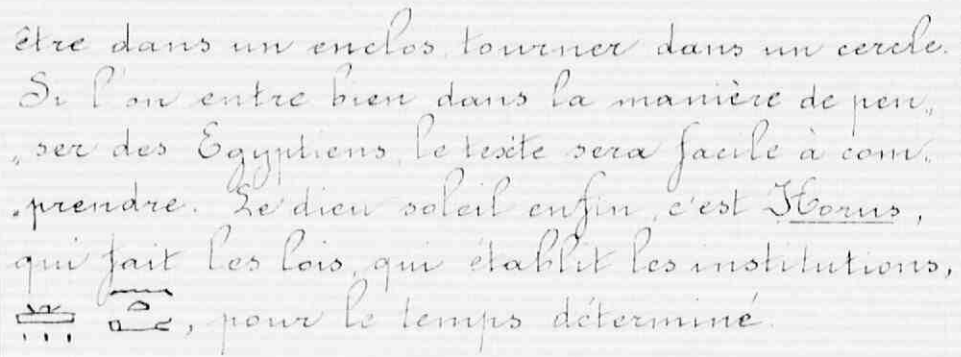 être dans un enclos, tourner dans un cercle.
Si l'on entre bien dans la manière de pen„
„ser des Egyptiens, le texte sera facile à com.
.prendre. Le dieu soleil enfin, c'est Horus,
qui fait les lois, qui établit les institutions,
, pour le temps déterminé.